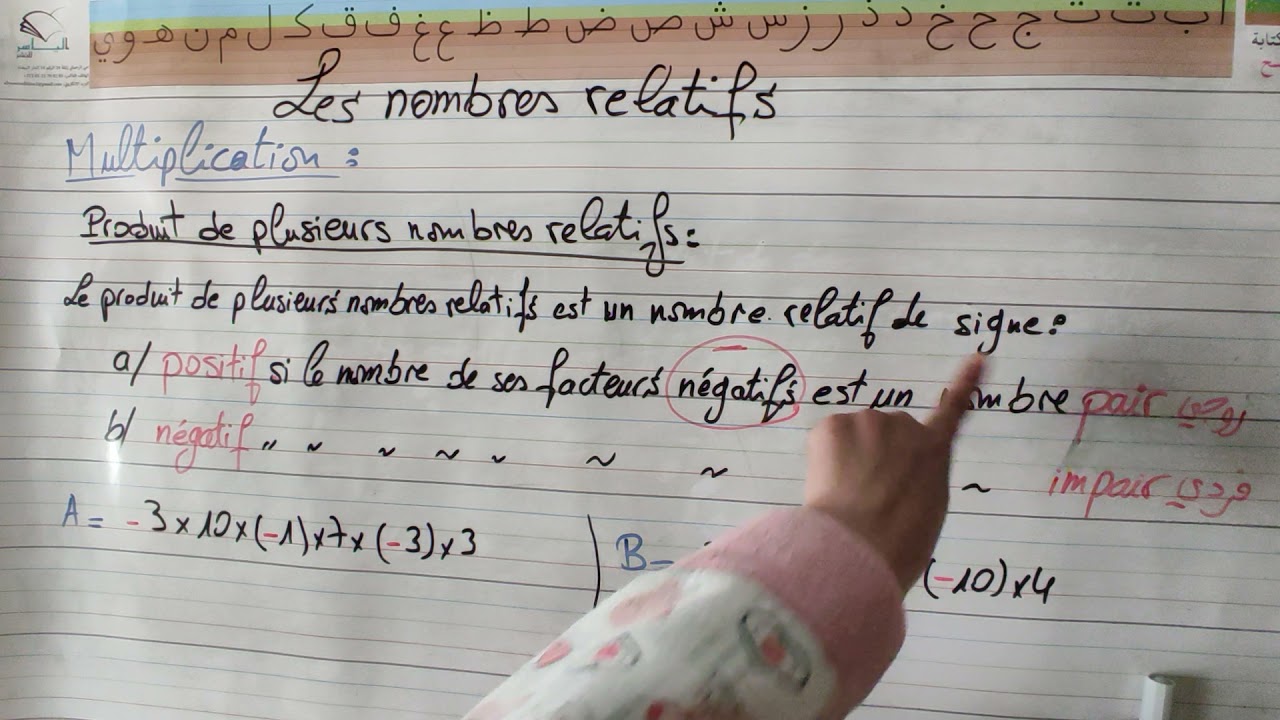 ا ب ت ث ج ح خ د ذ ر ز س ش ص ض ط ظ ع غ ف ق ك ل م ن ه و ي
الياسر
كتابة
Les nombres relatifs
Multiplication :
Produit de plusieurs nombres relatifs :
Le produit de plusieurs nombres relatifs est un nombre relatif de signe :
a/ positif si le nombre de ses facteurs négatifs est un nombre pair زوجي
b/ négatif " ~ ~ ~ ~ ~ ~ ~ impair فردي
A = -3×10×(-1)×7×(-3)×3
B = (-10)×4